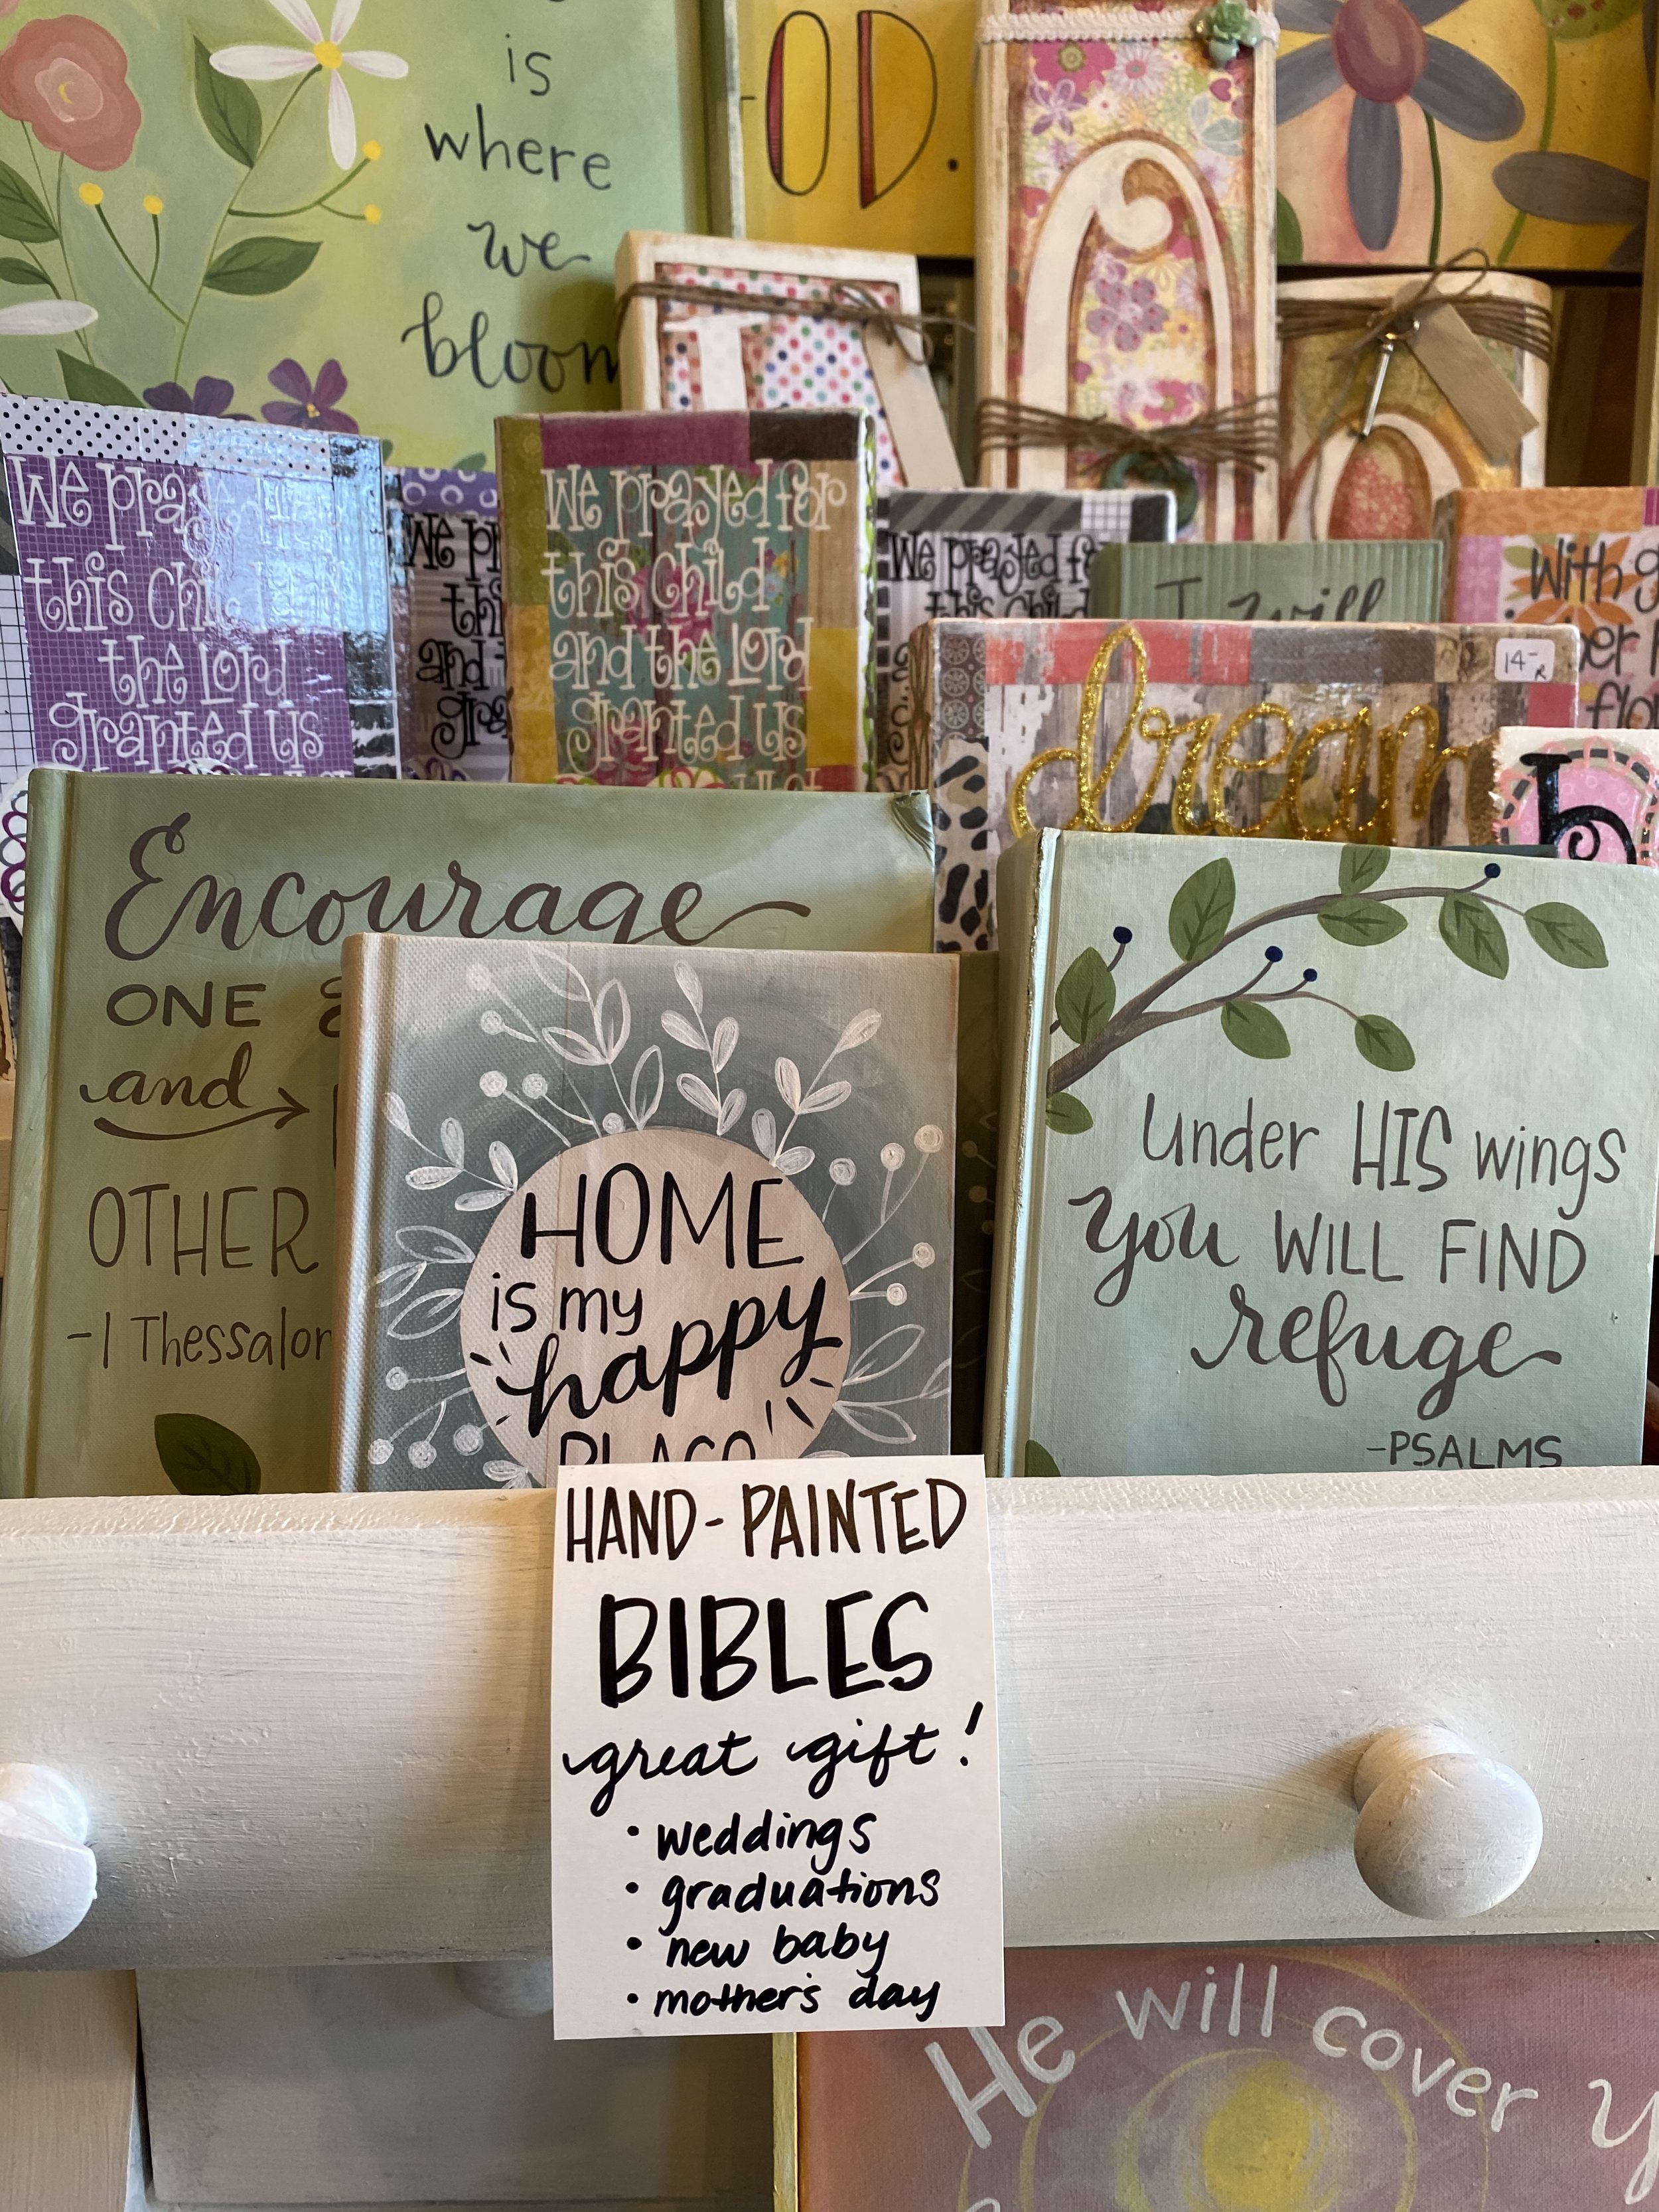 is
where
we
bloom
OD.
We
this
the Lord
granted us
We
and
We prayed for
this child
and the Lord
granted us
We prayed
this child
I will
With
her
dream
14-
R
h
Encourage
ONE
and
OTHER
-1
HOME
is my
happy
PLACE
Under HIS wings
you WILL FIND
refuge
-PSALMS
HAND-PAINTED
BIBLES
great gift!
• weddings
• graduations
• new baby
• mother's day
He will cover